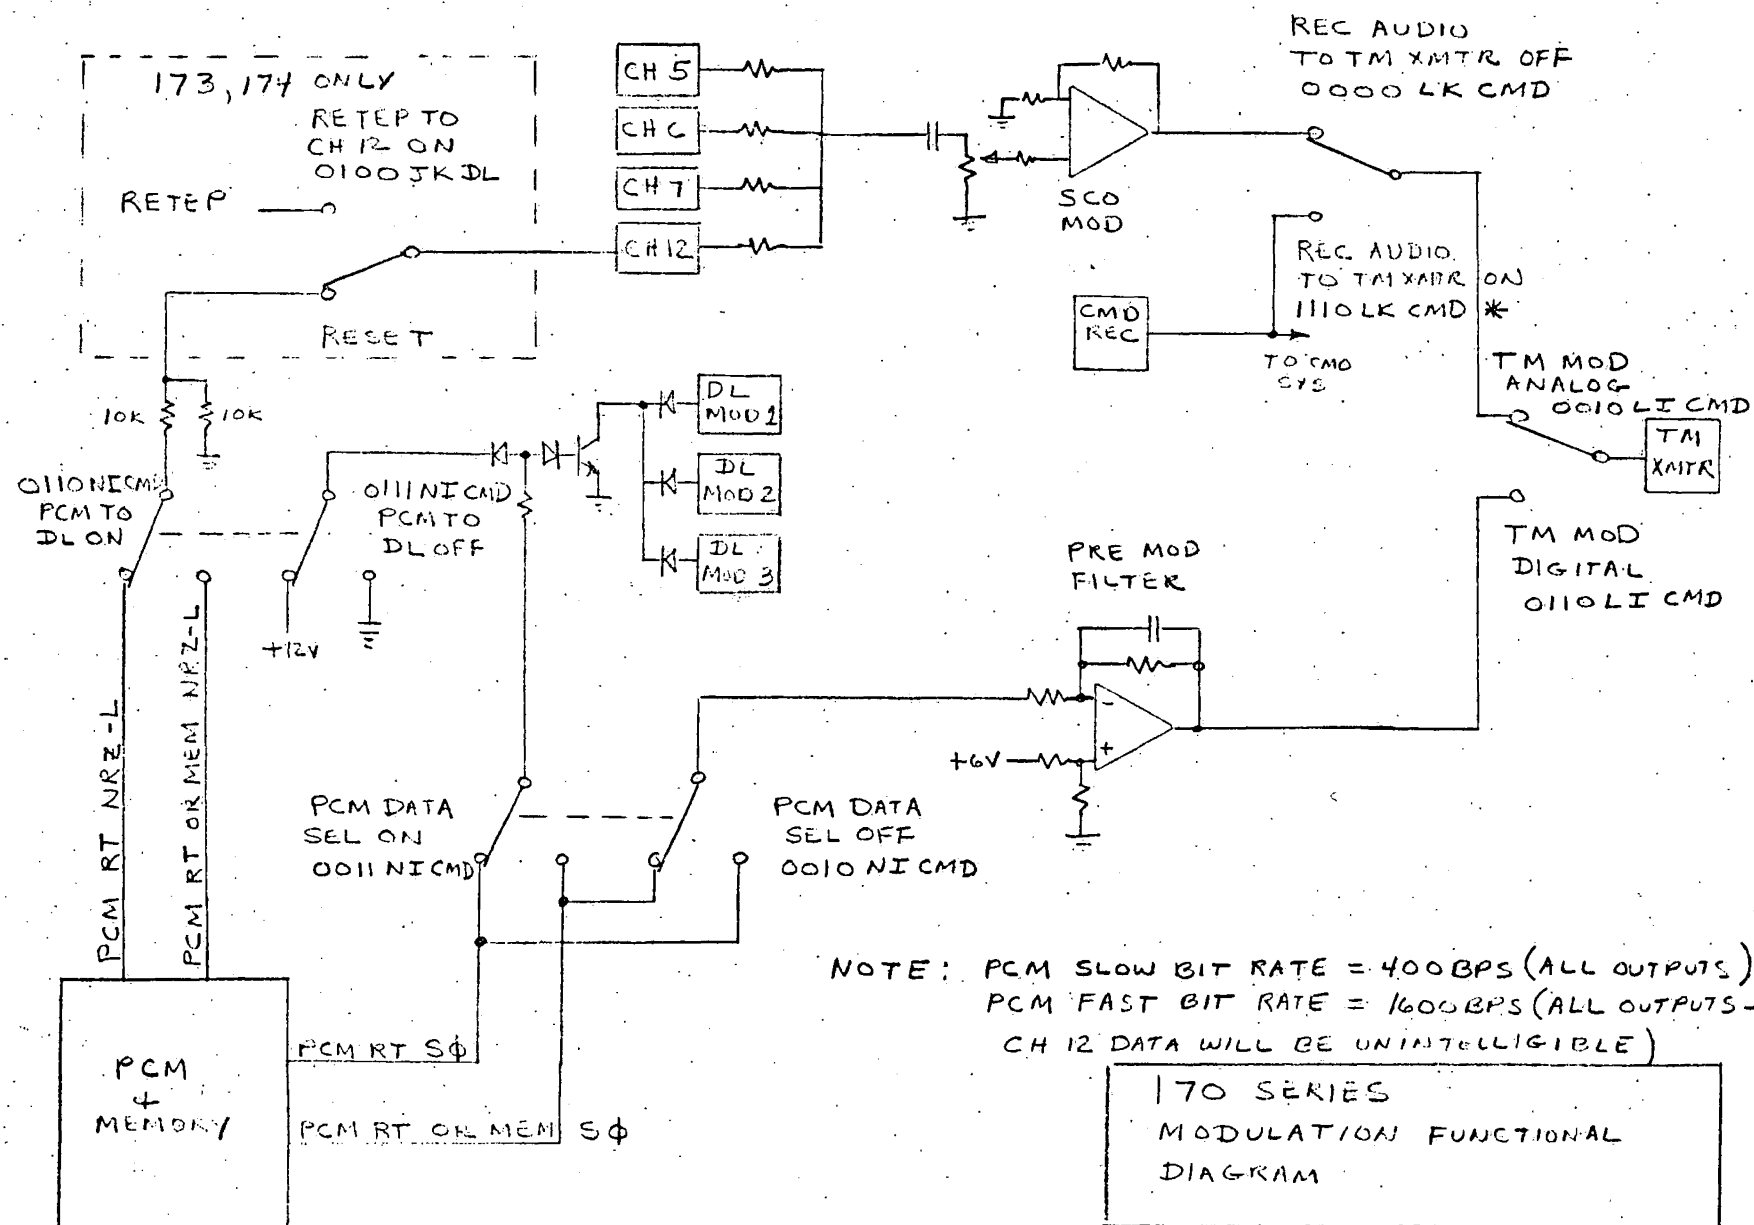 173, 174 ONLY
RETEP TO
CH 12 ON
0100 JK DL
RETEP
RESET
CH 5
CH 6
CH 7
CH 12
SCO
MOD
REC AUDIO
TO TM XMTR OFF
0000 LK CMD
REC AUDIO
TO TM XMTR ON
1110 LK CMD *
CMD
REC
TO CMD
SYS
TM MOD
ANALOG
0010 LI CMD
TM
XMTR
TM MOD
DIGITAL
0110 LI CMD
10K
10K
0110 NI CMD
PCM TO
DL ON
0111 NI CMD
PCM TO
DL OFF
+12V
DL
MOD 1
DL
MOD 2
DL
MOD 3
PRE MOD
FILTER
-
+
+6V
PCM RT NRZ-L
PCM RT OR MEM NRZ-L
PCM DATA
SEL ON
0011 NI CMD
PCM DATA
SEL OFF
0010 NI CMD
PCM
+
MEMORY
PCM RT SΦ
PCM RT OR MEM SΦ
NOTE: PCM SLOW BIT RATE = 400 BPS (ALL OUTPUTS)
PCM FAST BIT RATE = 1600 BPS (ALL OUTPUTS-
CH 12 DATA WILL BE UNINTELLIGIBLE)
170 SERIES
MODULATION FUNCTIONAL
DIAGRAM